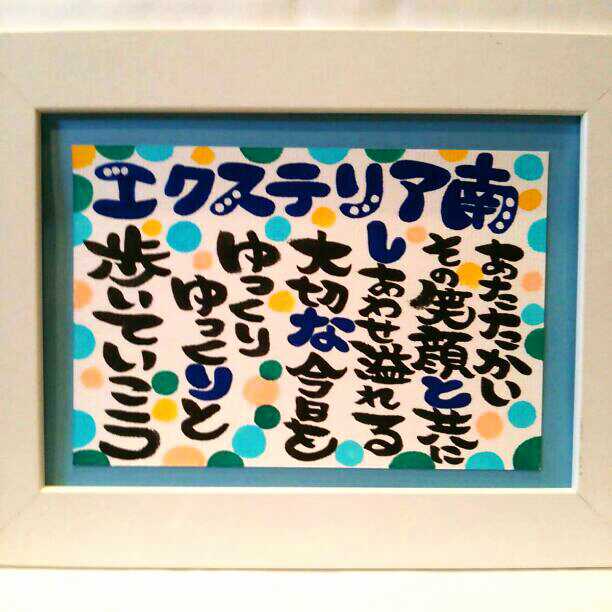 エクステリア南
あたたかい
その笑顔と共に
しあわせ溢れる
大切な今日を
ゆっくり
ゆっくりと
歩いていこう